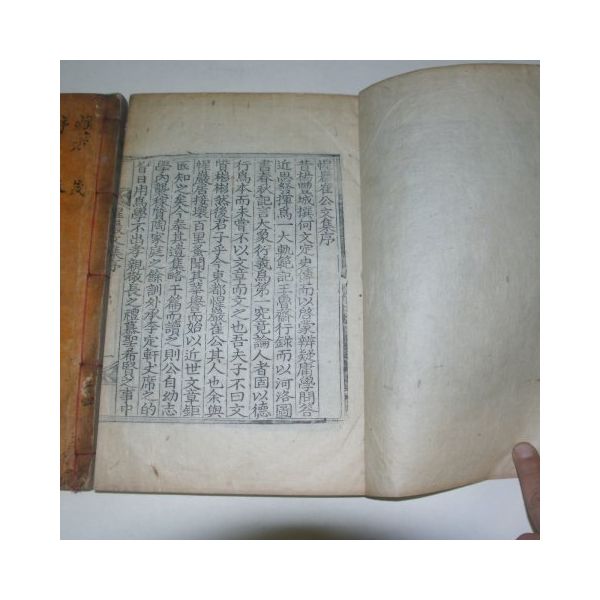 惺巖崔公文集序
昔楊豐城撰何文定史傳而以啓蒙辨疑庸學問答
近思發揮爲一大軌範記王魯齋行錄而以河洛圖
書春秋記言大象行義爲第一究竟論人者固以德
行爲本而未嘗不以文章而文之也吾夫子不曰文
質彬彬然後君子乎今東都惺巖崔公其人也余與
惺巖居接壤百里蚤聞其華譽而始以近世文章鉅
匠知之矣今奉其遺集略干篇而讀之則公自幼志
學內襲稼質陶家庭之餘訓外承李定軒丈席之的
旨日用爲學不出孝親敬長之禮慕聖希賢之事中